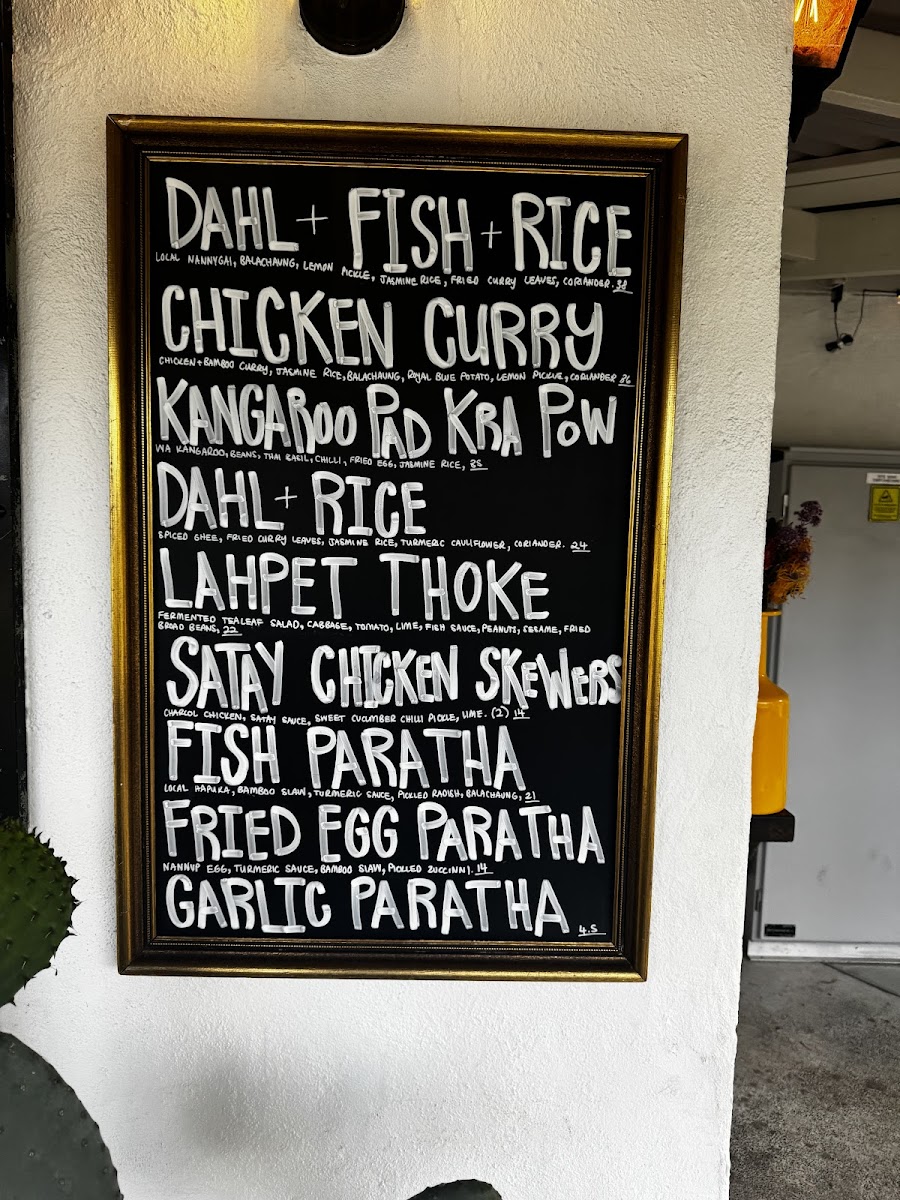 DAHL + FISH + RICE
LOCAL NANNYGAI, BALACHAUNG, LEMON PICKLE, JASMINE RICE, FRIED CURRY LEAVES, CORIANDER. 38
CHICKEN CURRY
CHICKEN + BAMBOO CURRY, JASMINE RICE, BALACHAUNG, ROYAL BLUE POTATO, LEMON PICKLE, CORIANDER 36
KANGAROO PAD KRA POW
WA KANGAROO, BEANS, THAI BASIL, CHILLI, FRIED EGG, JASMINE RICE, 35
DAHL + RICE
SPICED GHEE, FRIED CURRY LEAVES, JASMINE RICE, TURMERIC CAULIFLOWER, CORIANDER. 24
LAHPET THOKE
FERMENTED TEALEAF SALAD, CABBAGE, TOMATO, LIME, FISH SAUCE, PEANUTS, SESAME, FRIED
BROAD BEANS, 22
SATAY CHICKEN SKEWERS
CHARCOL CHICKEN, SATAY SAUCE, SWEET CUCUMBER CHILLI PICKLE, LIME. (2) 14
FISH PARATHA
LOCAL HAPUKA, BAMBOO SLAW, TURMERIC SAUCE, PICKLED RADISH, BALACHAUNG, 21
FRIED EGG PARATHA
NANNUP EGG, TURMERIC SAUCE, BAMBOO SLAW, PICKLED ZUCCINNI. 14
GARLIC PARATHA
4.5